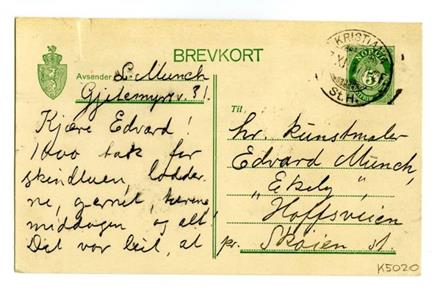 BREVKORT
Avsender L. Munch
Gjetemyrsv. 31.
Kjære Edvard!
1000 tak for
skindluen, lodder
ne, og alt!
middagen og alt!
Det var leit, at
KRISTIANIA
NORGE
5
St.H.
Til
hr. kunstmaler
Edvard Munch,
"Ekely"
Hoffsveien
pr. Skøien st.
K5020